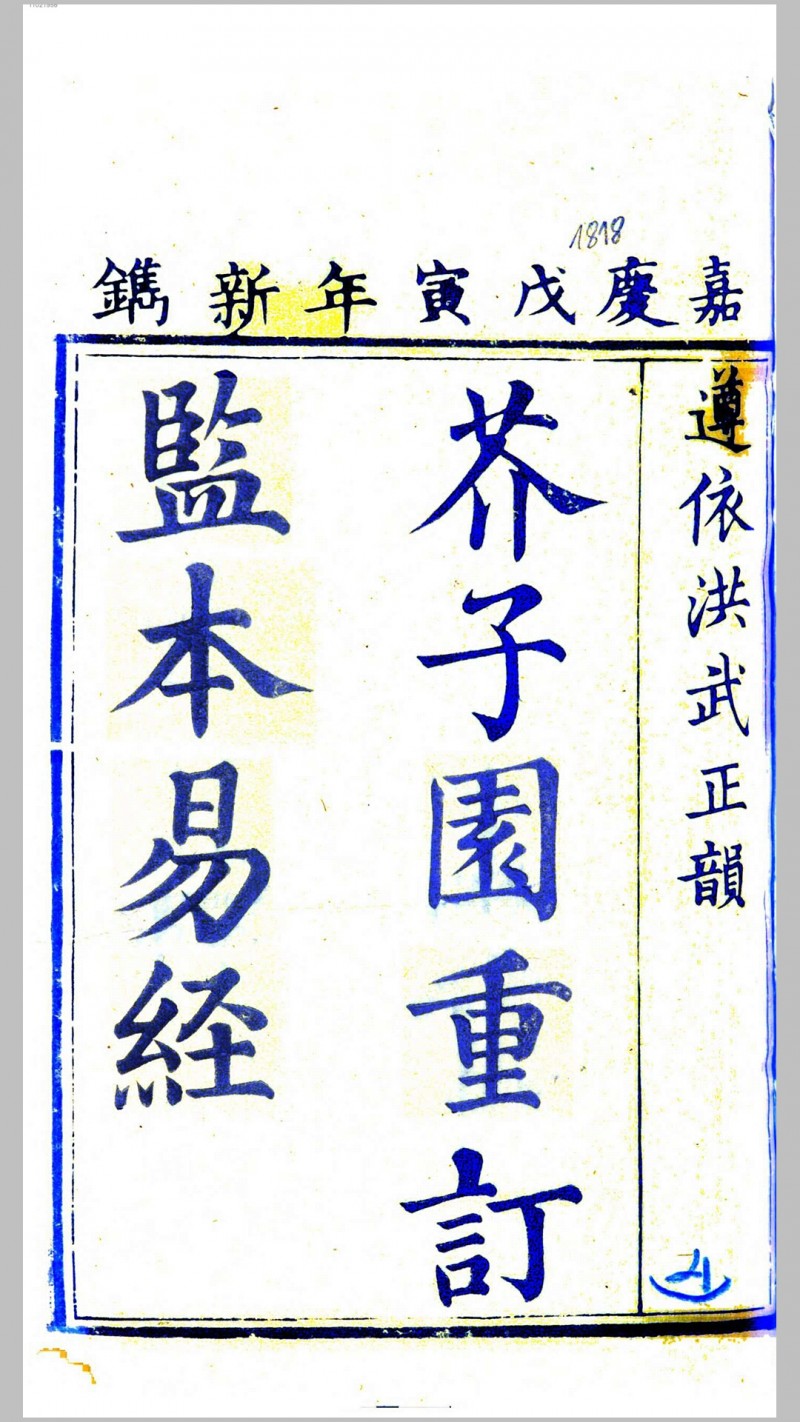 1818
嘉慶戊寅年新鐫
遵依洪武正韻
芥子園重訂
監本易経